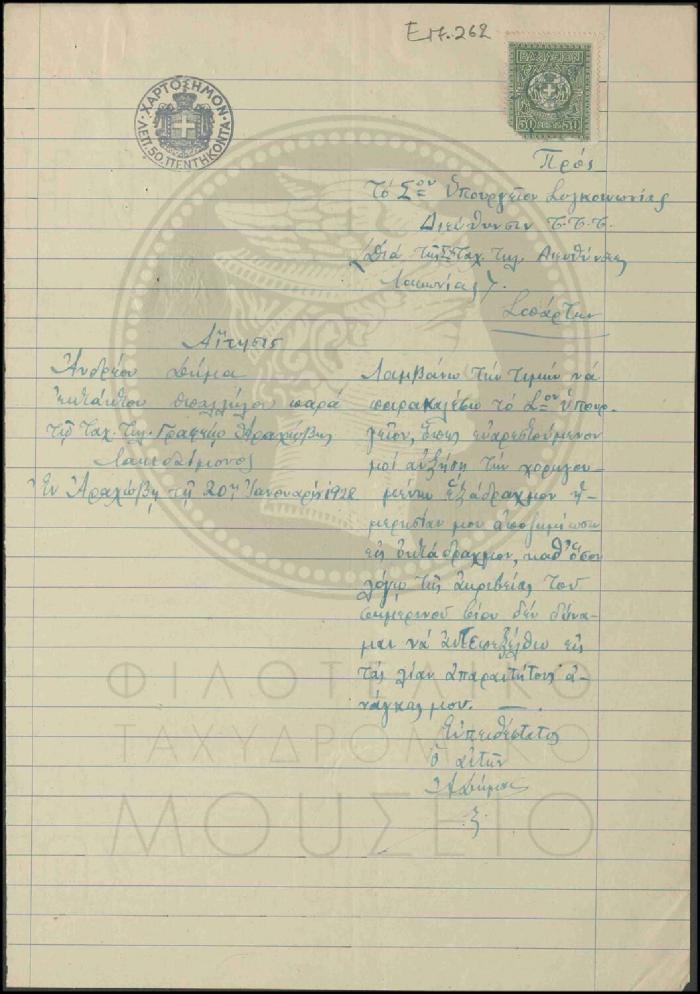 Επ. 262
ΕΛΛΑΣ
50 50
ΧΑΡΤΟΣΗΜΟΝ
ΛΕΠ. 50. ΠΕΝΤΗΚΟΝΤΑ
Πρός
τό Σον Ὑπουργεῖον Συγκοινωνίας
Διεύθυνσιν Τ.Τ.Τ.
Διά τῆς Ταχ. Τηλ. Διευθύνσεως
Λακωνίας
Σπάρτην
Αἴτησις
Ἀνδρέου Δήμα
ἐκτάκτου ὑπαλλήλου παρά
τῷ Ταχ. Τηλ. Γραφείῳ Ἀραχώβης
Λακεδαίμονος
Ἐν Ἀραχώβῃ τῇ 20ῃ Ἰανουαρίου 1928
Λαμβάνω τήν τιμήν νά
παρακαλέσω τό Σον Ὑπουρ-
γεῖον, ὅπως εὐαρεστούμενον
μοί αὐξήσῃ τήν χορηγου-
μένην ἑξάδραχμον ἡ-
μερησίαν μου ἀποζημίωσιν
εἰς ὀκτάδραχμον, καθ' ὅσον
λόγῳ τῆς ἀκριβείας τοῦ
σημερινοῦ βίου δέν δύνα-
μαι νά ἀντεπεξέλθω εἰς
τάς λίαν ἀπαραιτήτους ἀ-
νάγκας μου.
Εὐπειθέστατος
Ὁ αἰτῶν
Α Δήμας
ΦΙΛΟΤΕΛΙΚΟ
ΤΑΧΥΔΡΟΜΙΚΟ
ΜΟΥΣΕΙΟ